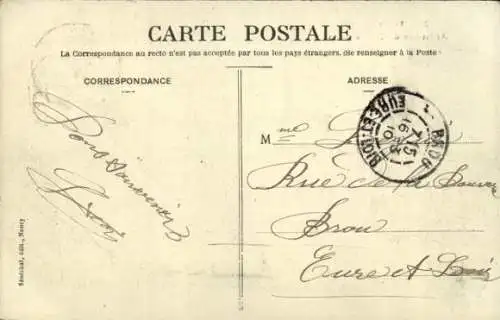 CARTE POSTALE
La Correspondance au recto n'est pas acceptée par tous les pays étrangers. (Se renseigner à la Poste)
CORRESPONDANCE
ADRESSE
Bons Souvenirs
Mme
Rue de la
Brou
Eure et Loir
BROU
EURE-ET-LOIR
Sénéchal, édit., Nancy